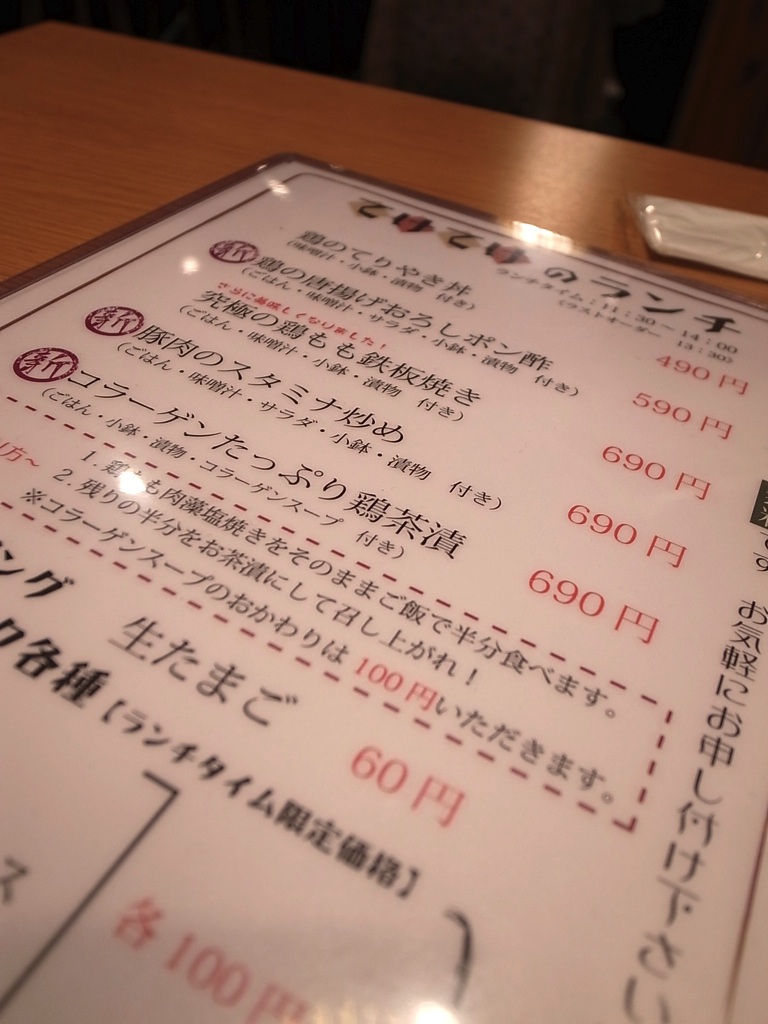 てけてけのランチ
ランチタイム：11：30～14：00
(ラストオーダー 13：30)
鶏のてりやき丼 490円
(味噌汁・小鉢・漬物 付き)
新 鶏の唐揚げおろしポン酢 590円
(ごはん・味噌汁・サラダ・小鉢・漬物 付き)
さらに美味しくなりました！
究極の鶏もも鉄板焼き 690円
(ごはん・味噌汁・小鉢・漬物 付き)
新 豚肉のスタミナ炒め 690円
(ごはん・味噌汁・サラダ・小鉢・漬物 付き)
新 コラーゲンたっぷり鶏茶漬 690円
(ごはん・小鉢・漬物・コラーゲンスープ 付き)
り方～
1. 鶏もも肉藻塩焼きをそのままご飯で半分食べます。
2. 残りの半分をお茶漬にして召し上がれ！
※コラーゲンスープのおかわりは100円いただきます。
ング
生たまご 60円
ク各種【ランチタイム限定価格】
ス
各100円
です お気軽にお申し付け下さい